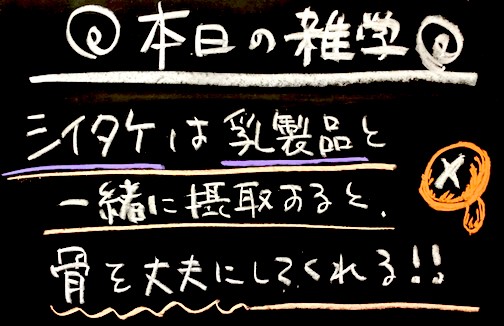 本日の雑学
シイタケは乳製品と
一緒に摂取すると、
骨を丈夫にしてくれる!!